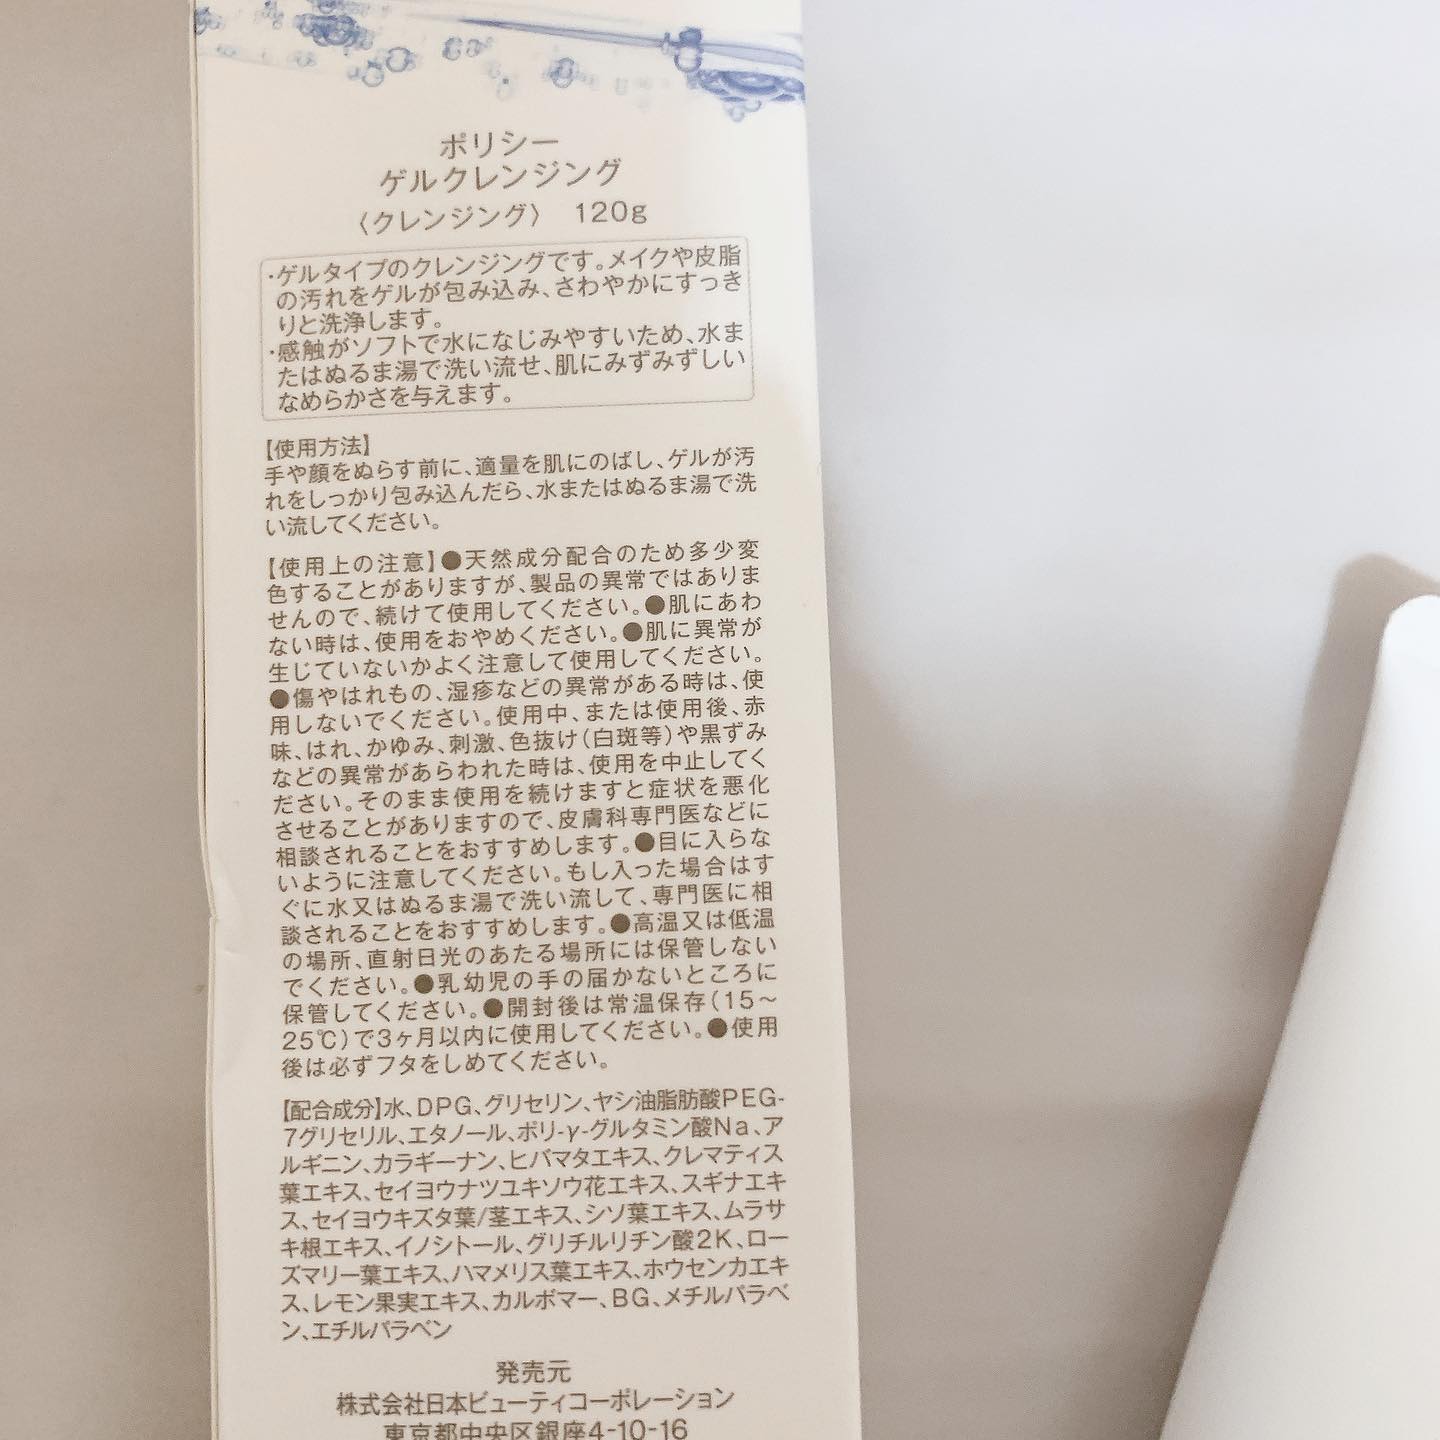 ポリシー
ゲルクレンジング
〈クレンジング〉 120g
・ゲルタイプのクレンジングです。メイクや皮脂
の汚れをゲルが包み込み、さわやかにすっき
りと洗浄します。
・感触がソフトで水になじみやすいため、水ま
たはぬるま湯で洗い流せ、肌にみずみずしい
なめらかさを与えます。
【使用方法】
手や顔をぬらす前に、適量を肌にのばし、ゲルが汚
れをしっかり包み込んだら、水またはぬるま湯で洗
い流してください。
【使用上の注意】●天然成分配合のため多少変
色することがありますが、製品の異常ではありま
せんので、続けて使用してください。●肌にあわ
ない時は、使用をおやめください。●肌に異常が
生じていないかよく注意して使用してください。
●傷やはれもの、湿疹などの異常がある時は、使
用しないでください。使用中、または使用後、赤
味、はれ、かゆみ、刺激、色抜け（白斑等）や黒ずみ
などの異常があらわれた時は、使用を中止してく
ださい。そのまま使用を続けますと症状を悪化
させることがありますので、皮膚科専門医などに
相談されることをおすすめします。●目に入らな
いように注意してください。もし入った場合はす
ぐに水又はぬるま湯で洗い流して、専門医に相
談されることをおすすめします。●高温又は低温
の場所、直射日光のあたる場所には保管しない
でください。●乳幼児の手の届かないところに
保管してください。●開封後は常温保存（15～
25℃）で3ヶ月以内に使用してください。●使用
後は必ずフタをしめてください。
【配合成分】水、DPG、グリセリン、ヤシ油脂肪酸PEG-
7グリセリル、エタノール、ポリ-γ-グルタミン酸Na、ア
ルギニン、カラギーナン、ヒバマタエキス、クレマティス
葉エキス、セイヨウナツユキソウ花エキス、スギナエキ
ス、セイヨウキズタ葉/茎エキス、シソ葉エキス、ムラサ
キ根エキス、イノシトール、グリチルリチン酸2K、ロー
ズマリー葉エキス、ハマメリス葉エキス、ホウセンカエキ
ス、レモン果実エキス、カルボマー、BG、メチルパラベ
ン、エチルパラベン
発売元
株式会社日本ビューティコーポレーション
東京都中央区銀座4-10-16